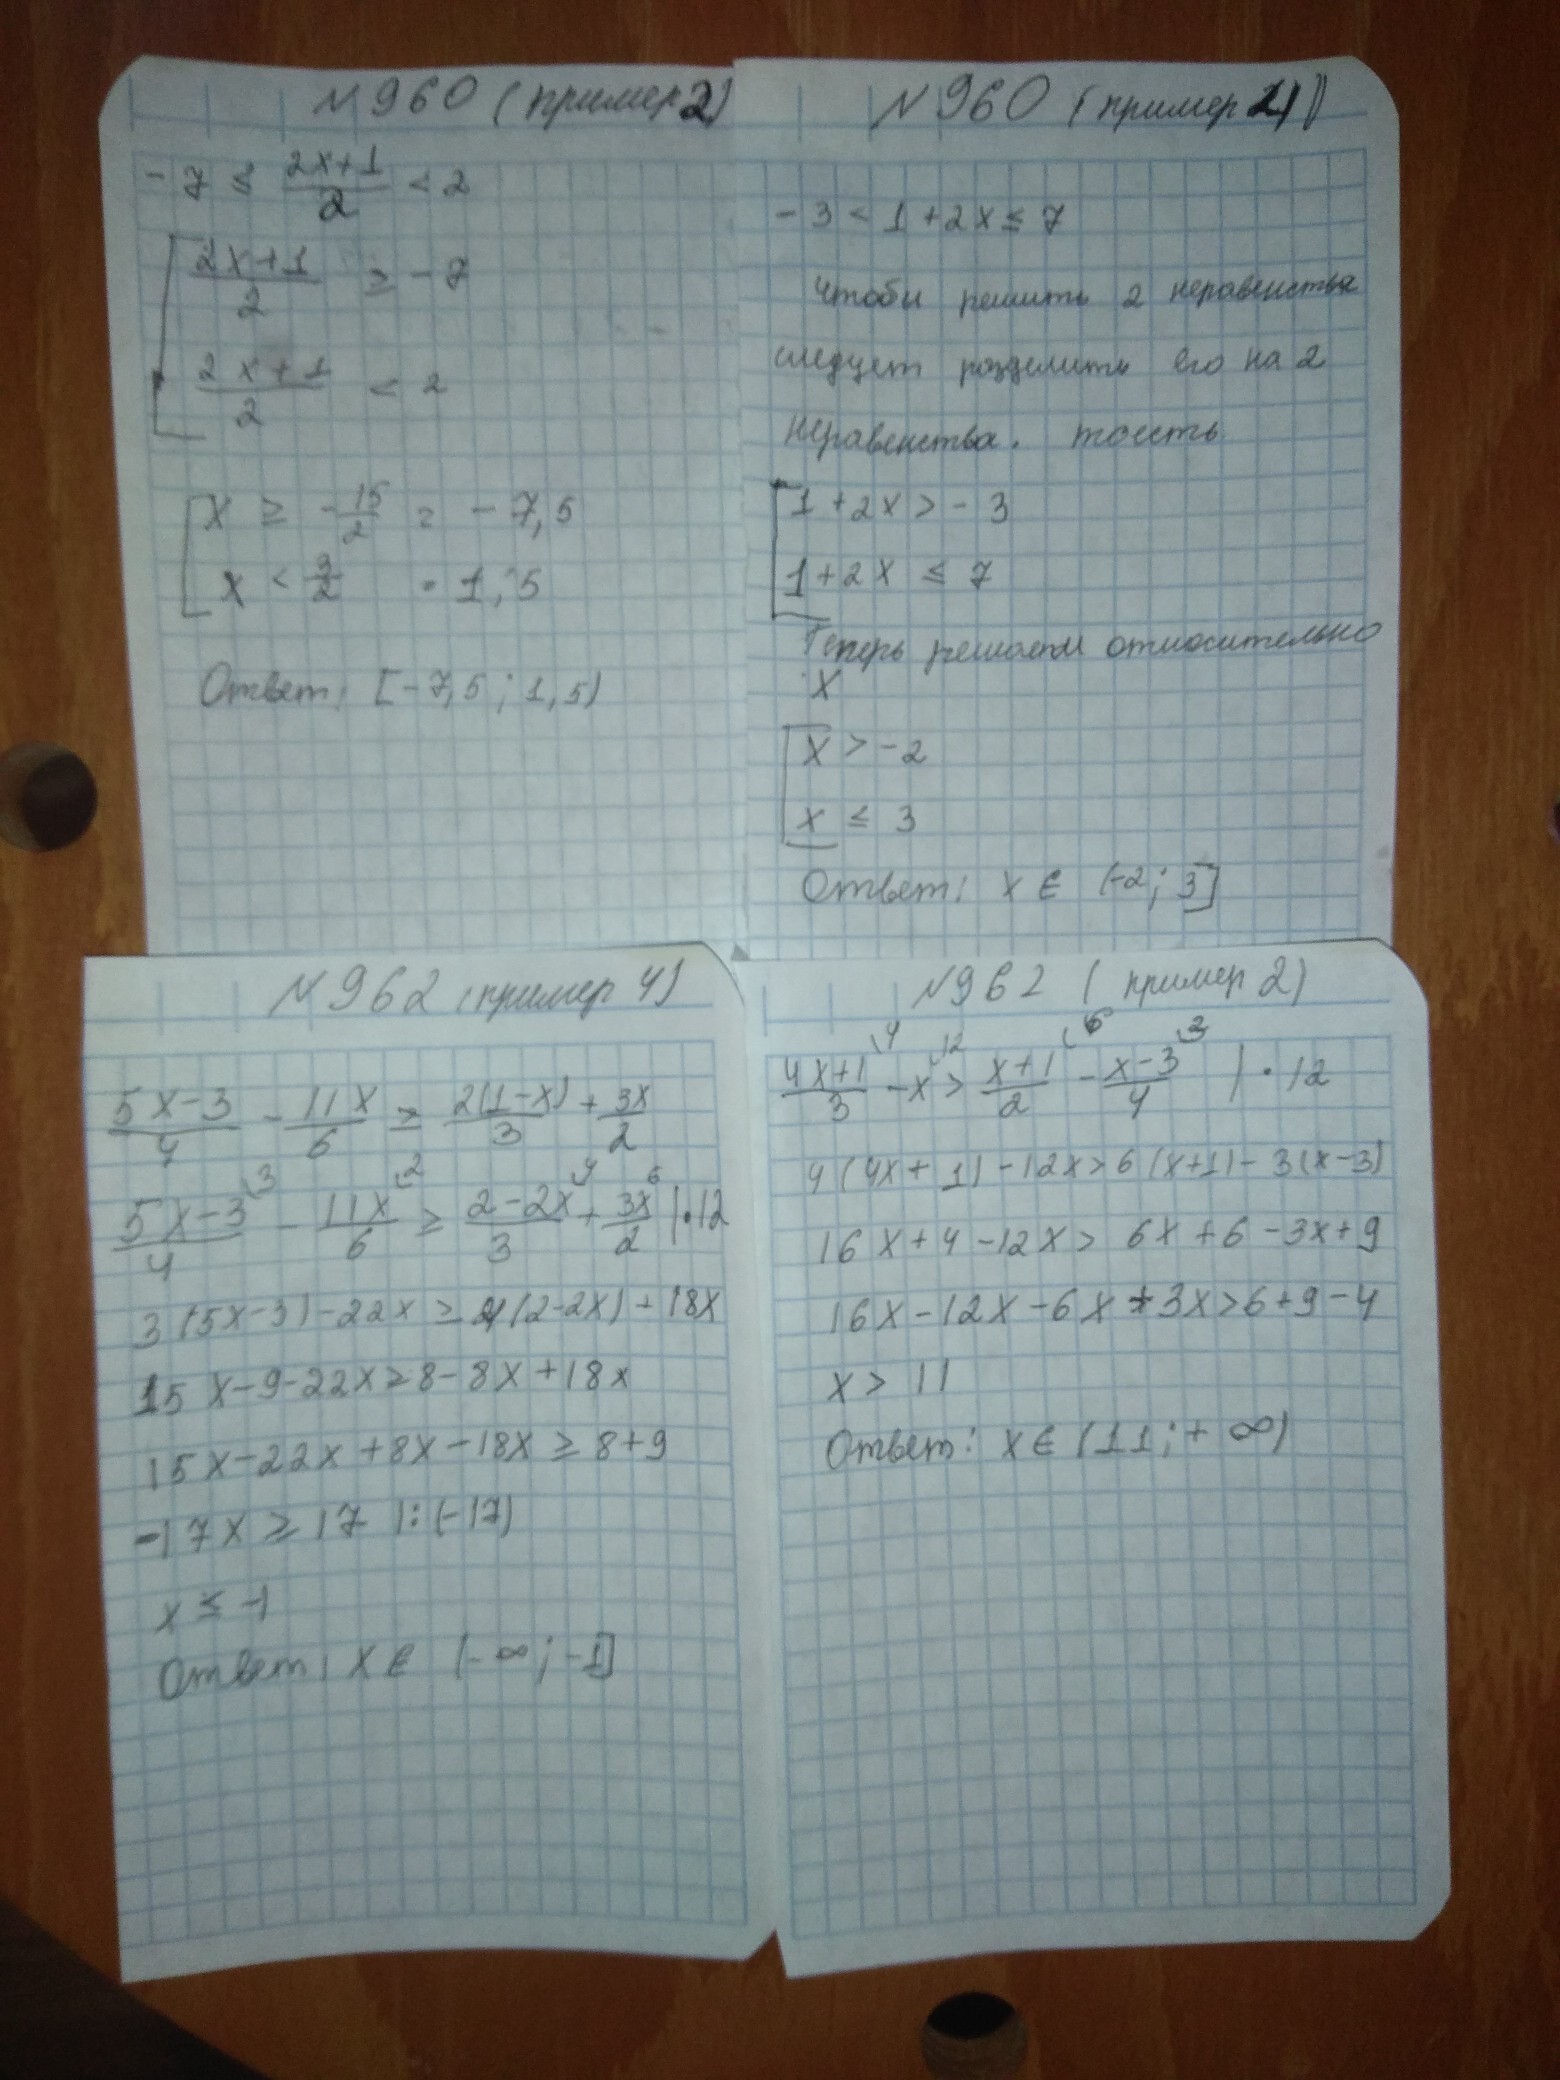 N 960 (пример 2)
-7 ≤ (2x+1)/2 < 2
(2x+1)/2 ≥ -7
(2x+1)/2 < 2
x ≥ -15/2 = -7,5
x < 3/2 = 1,5
Ответ: [-7,5; 1,5)
N 960 (пример 1)
-3 < 1+2x ≤ 7
чтобы решить 2 неравенства
следует розделить его на 2
неравенства. тоесть
1+2x > -3
1+2x ≤ 7
Теперь решаем относительно
x
x > -2
x ≤ 3
Ответ: x ∈ (-2; 3]
N 962 (пример 4)
(5x-3)/4 - 11x/6 ≥ 2(1-x)/3 + 3x/2
(5x-3)/4 \3 - 11x/6 \2 ≥ (2-2x)/3 \4 + 3x/2 \6 | · 12
3(5x-3)-22x ≥ 4(2-2x)+18x
15x-9-22x ≥ 8-8x+18x
15x-22x+8x-18x ≥ 8+9
-17x ≥ 17 |:(-17)
x ≤ -1
Ответ: x ∈ (-∞; -1]
N 962 (пример 2)
(4x+1)/3 \4 - x \12 > (x+1)/2 \6 - (x-3)/4 \3 | · 12
4(4x+1)-12x > 6(x+1)-3(x-3)
16x+4-12x > 6x+6-3x+9
16x-12x-6x+3x > 6+9-4
x > 11
Ответ: x ∈ (11; +∞)